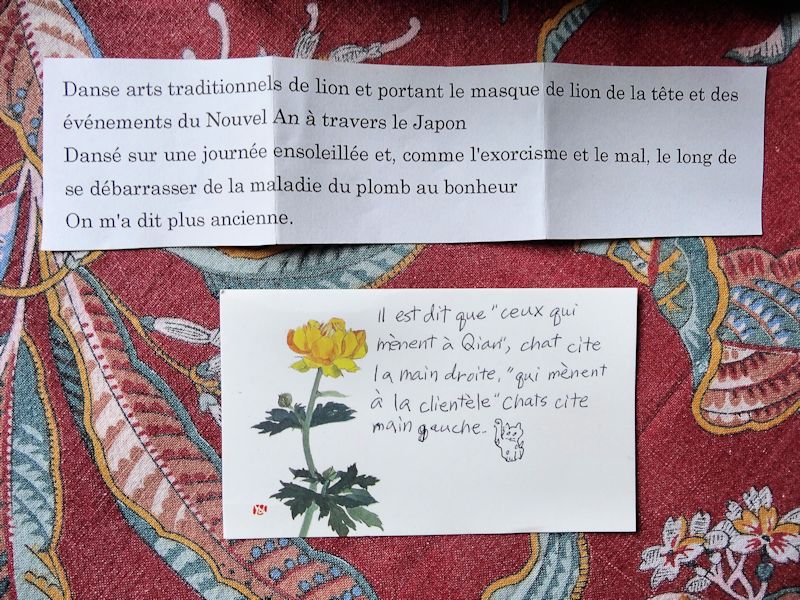 Danse arts traditionnels de lion et portant le masque de lion de la tête et des
événements du Nouvel An à travers le Japon
Dansé sur une journée ensoleillée et, comme l'exorcisme et le mal, le long de
se débarrasser de la maladie du plomb au bonheur
On m'a dit plus ancienne.
Il est dit que "ceux qui
mènent à Qian", chat cite
la main droite, "qui mènent
à la clientèle" Chats cite
main gauche..